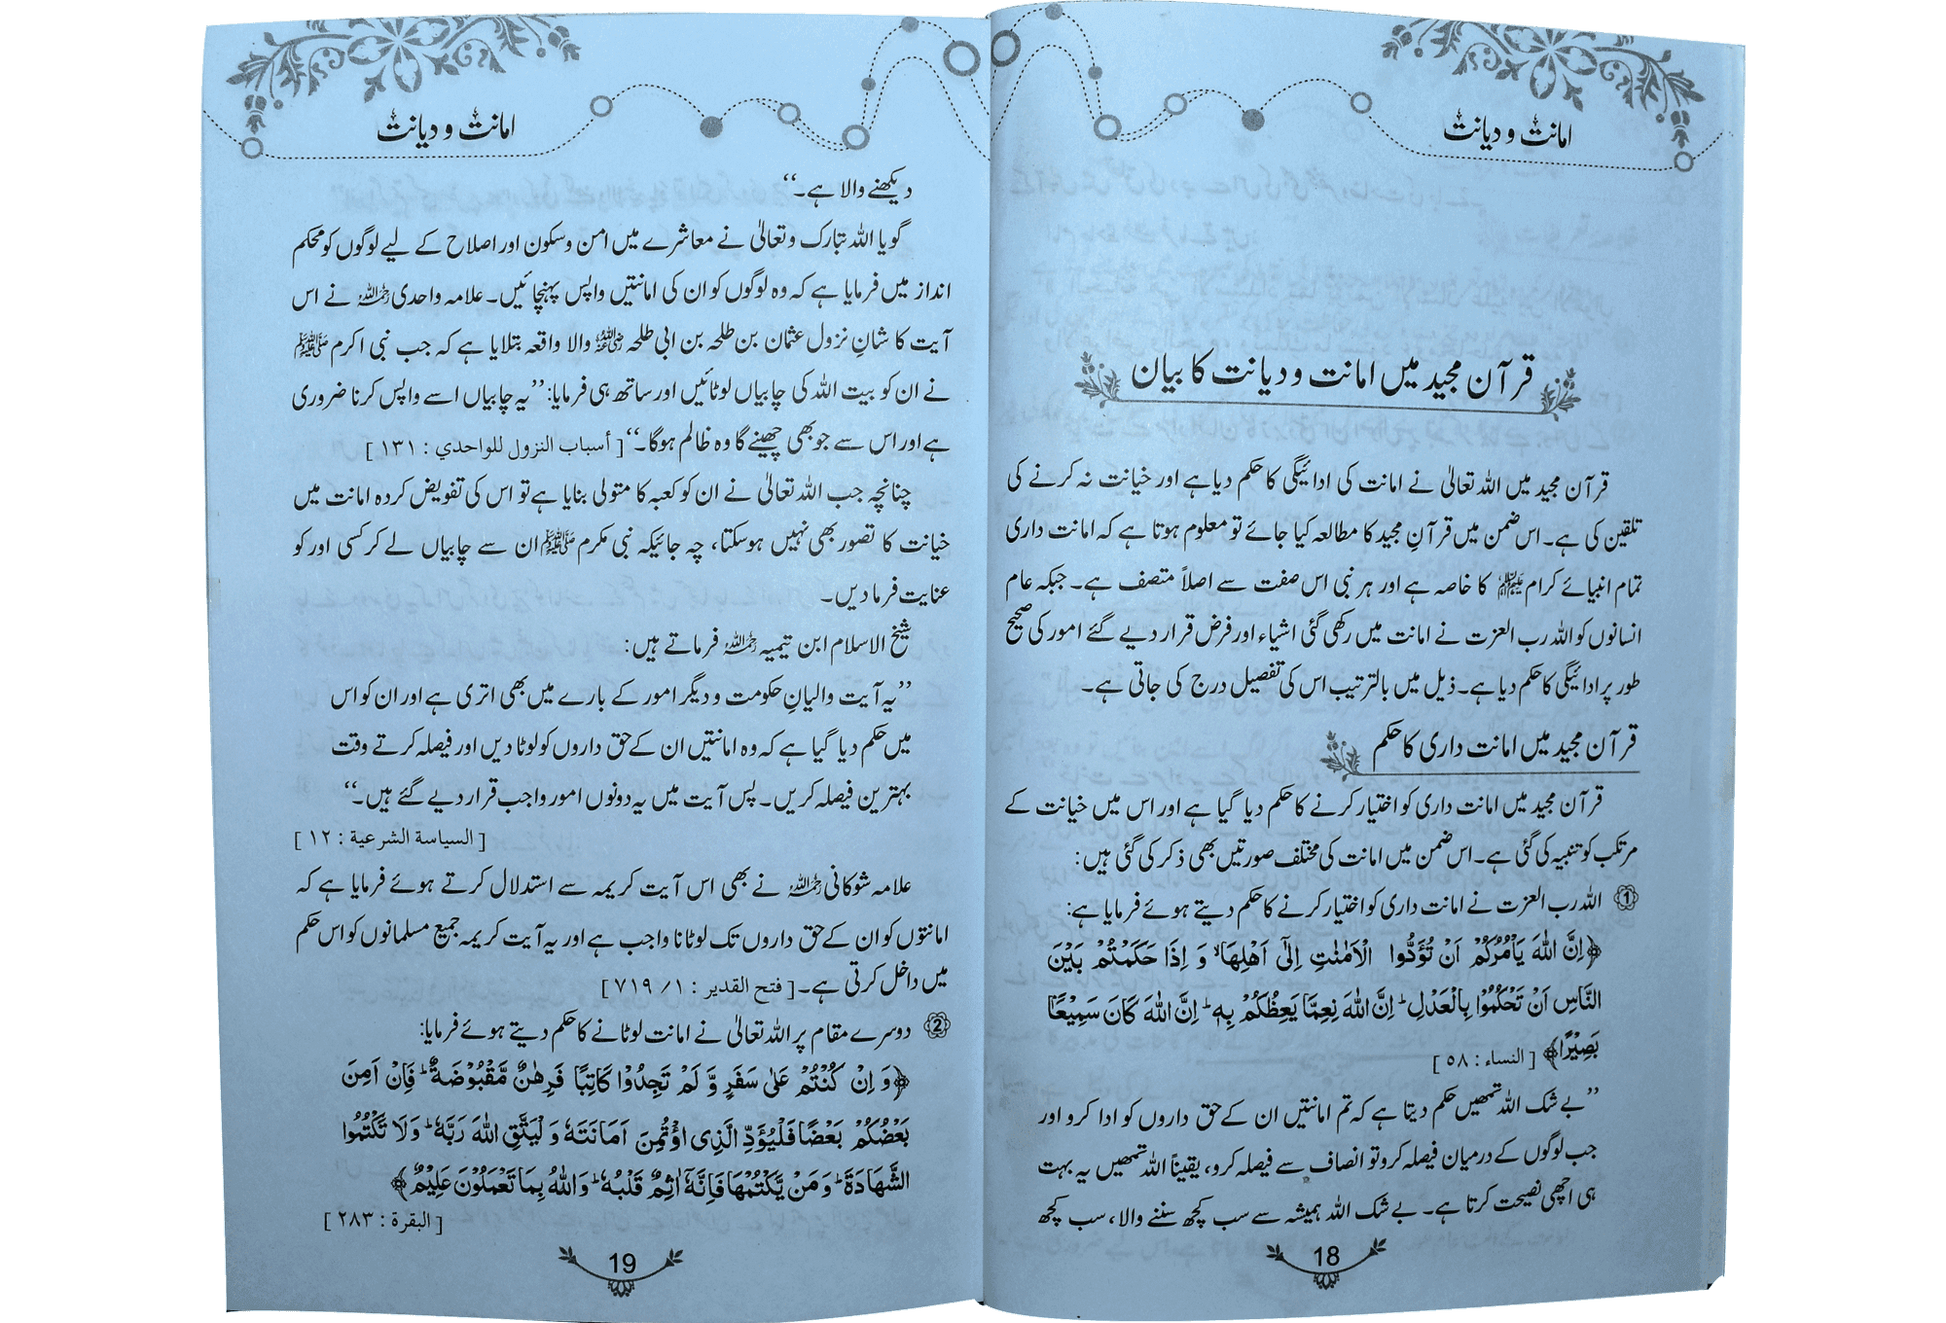 امانت و دیانت
قرآن مجید میں امانت و دیانت کا بیان
قرآن مجید میں اللہ تعالیٰ نے امانت کی ادائیگی کا حکم دیا ہے اور خیانت نہ کرنے کی
تلقین کی ہے۔ اس ضمن میں قرآنِ مجید کا مطالعہ کیا جائے تو معلوم ہوتا ہے کہ امانت داری
تمام انبیائے کرام علیہم السلام کا خاصہ ہے اور ہر نبی اس صفت سے اصلاً متصف ہے۔ جبکہ عام
انسانوں کو اللہ رب العزت نے امانت میں رکھی گئی اشیاء اور فرض قرار دیے گئے امور کی صحیح
طور پر ادائیگی کا حکم دیا ہے۔ ذیل میں بالترتیب اس کی تفصیل درج کی جاتی ہے۔
قرآن مجید میں امانت داری کا حکم
قرآن مجید میں امانت داری کو اختیار کرنے کا حکم دیا گیا ہے اور اس میں خیانت کے
مرتکب کو تنبیہ کی گئی ہے۔ اس ضمن میں امانت کی مختلف صورتیں بھی ذکر کی گئی ہیں:
① اللہ رب العزت نے امانت داری کو اختیار کرنے کا حکم دیتے ہوئے فرمایا ہے:
﴿اِنَّ اللّٰهَ یَاْمُرُكُمْ اَنْ تُؤَدُّوا الْاَمٰنٰتِ اِلٰۤی اَهْلِهَا ۙ وَ اِذَا حَكَمْتُمْ بَیْنَ
النَّاسِ اَنْ تَحْكُمُوْا بِالْعَدْلِ ؕ اِنَّ اللّٰهَ نِعِمَّا یَعِظُكُمْ بِهٖ ؕ اِنَّ اللّٰهَ كَانَ سَمِیْعًۢا
بَصِیْرًا﴾ [النساء : ٥٨]
’’بے شک اللہ تمھیں حکم دیتا ہے کہ تم امانتیں ان کے حق داروں کو ادا کرو اور
جب لوگوں کے درمیان فیصلہ کرو تو انصاف سے فیصلہ کرو، یقیناً اللہ تمھیں یہ بہت
ہی اچھی نصیحت کرتا ہے۔ بے شک اللہ ہمیشہ سے سب کچھ سننے والا، سب کچھ
18
امانت و دیانت
دیکھنے والا ہے۔‘‘
گویا اللہ تبارک و تعالیٰ نے معاشرے میں امن و سکون اور اصلاح کے لیے لوگوں کو محکم
انداز میں فرمایا ہے کہ وہ لوگوں کو ان کی امانتیں واپس پہنچائیں۔ علامہ واحدی رحمہ اللہ نے اس
آیت کا شانِ نزول عثمان بن طلحہ بن ابی طلحہ رضی اللہ عنہ والا واقعہ بتلایا ہے کہ جب نبی اکرم ﷺ
نے ان کو بیت اللہ کی چابیاں لوٹائیں اور ساتھ ہی فرمایا: ’’یہ چابیاں اسے واپس کرنا ضروری
ہے اور اس سے جو بھی چھینے گا وہ ظالم ہوگا۔‘‘ [أسباب النزول للواحدي : ١٣١]
چنانچہ جب اللہ تعالیٰ نے ان کو کعبہ کا متولی بنایا ہے تو اس کی تفویض کردہ امانت میں
خیانت کا تصور بھی نہیں ہوسکتا، چہ جائیکہ نبی مکرم ﷺ ان سے چابیاں لے کر کسی اور کو
عنایت فرما دیں۔
شیخ الاسلام ابن تیمیہ رحمہ اللہ فرماتے ہیں:
’’یہ آیت والیانِ حکومت و دیگر امور کے بارے میں بھی اتری ہے اور ان کو اس
میں حکم دیا گیا ہے کہ وہ امانتیں ان کے حق داروں کو لوٹا دیں اور فیصلہ کرتے وقت
بہترین فیصلہ کریں۔ پس آیت میں یہ دونوں امور واجب قرار دیے گئے ہیں۔‘‘
[السياسة الشرعية : ١٢]
علامہ شوکانی رحمہ اللہ نے بھی اس آیت کریمہ سے استدلال کرتے ہوئے فرمایا ہے کہ
امانتوں کو ان کے حق داروں تک لوٹانا واجب ہے اور یہ آیت کریمہ جمیع مسلمانوں کو اس حکم
میں داخل کرتی ہے۔ [فتح القدير : ١/ ٧١٩]
② دوسرے مقام پر اللہ تعالیٰ نے امانت لوٹانے کا حکم دیتے ہوئے فرمایا:
﴿وَ اِنْ كُنْتُمْ عَلٰی سَفَرٍ وَّ لَمْ تَجِدُوْا كَاتِبًا فَرِهٰنٌ مَّقْبُوْضَةٌ ؕ فَاِنْ اَمِنَ
بَعْضُكُمْ بَعْضًا فَلْیُؤَدِّ الَّذِی اؤْتُمِنَ اَمَانَتَهٗ وَ لْیَتَّقِ اللّٰهَ رَبَّهٗ ؕ وَ لَا تَكْتُمُوا
الشَّهَادَةَ ؕ وَ مَنْ یَّكْتُمْهَا فَاِنَّهٗۤ اٰثِمٌ قَلْبُهٗ ؕ وَ اللّٰهُ بِمَا تَعْمَلُوْنَ عَلِیْمٌ﴾
[البقرة : ٢٨٣]
19